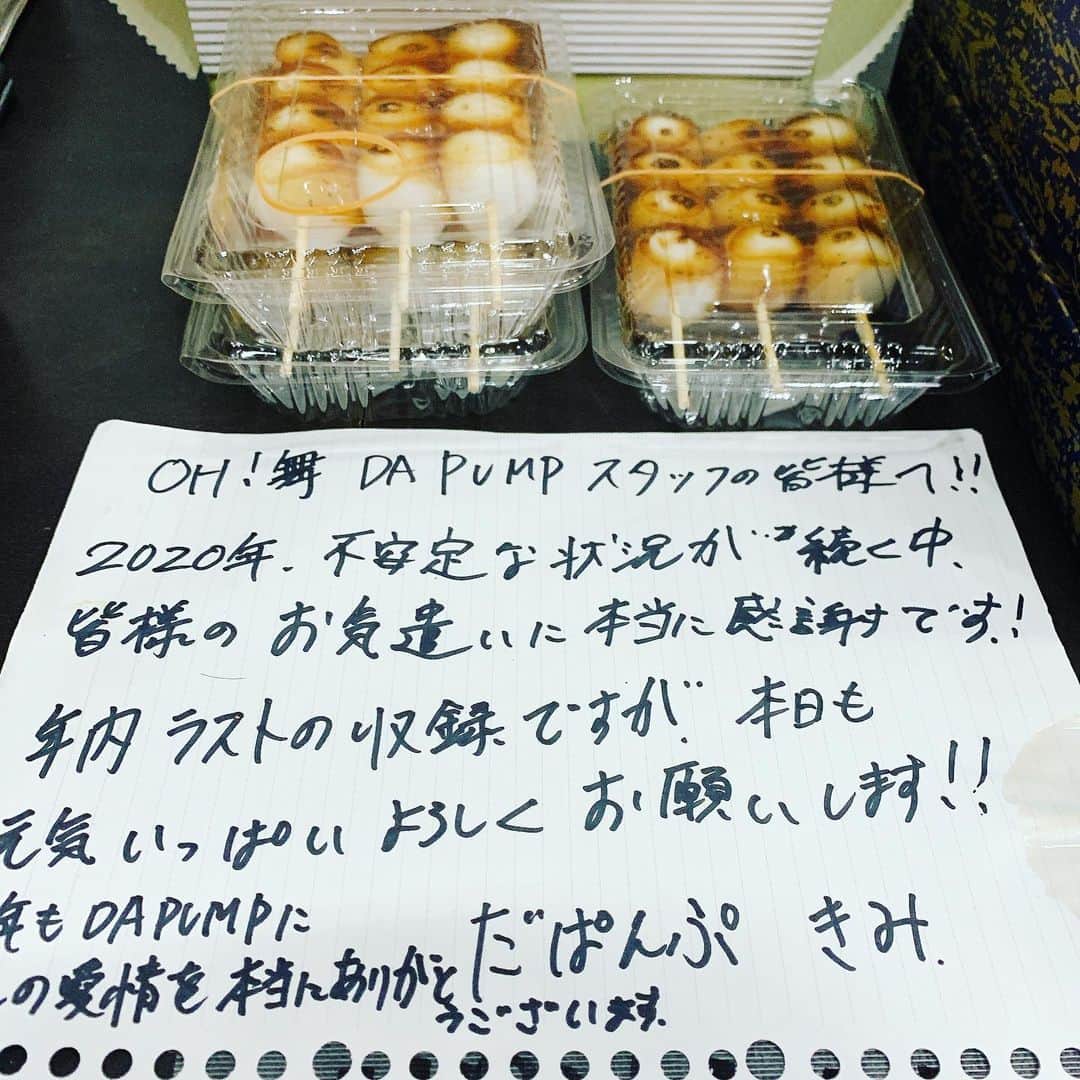 OH!舞 DA PUMP スタッフの皆様へ!!
2020年、不安定な状況が続く中、
皆様のお気遣いに本当に感謝です!
年内ラストの収録ですが、本日も
元気いっぱいよろしくお願いします!!
年もDA PUMPに
の愛情を本当にありがとうございます.
だぱんぷ きみ.